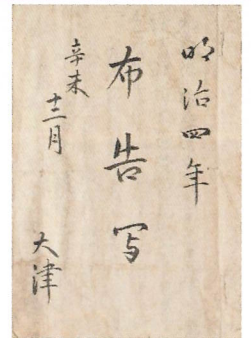 明治四年
布告写
辛未
十二月
大津